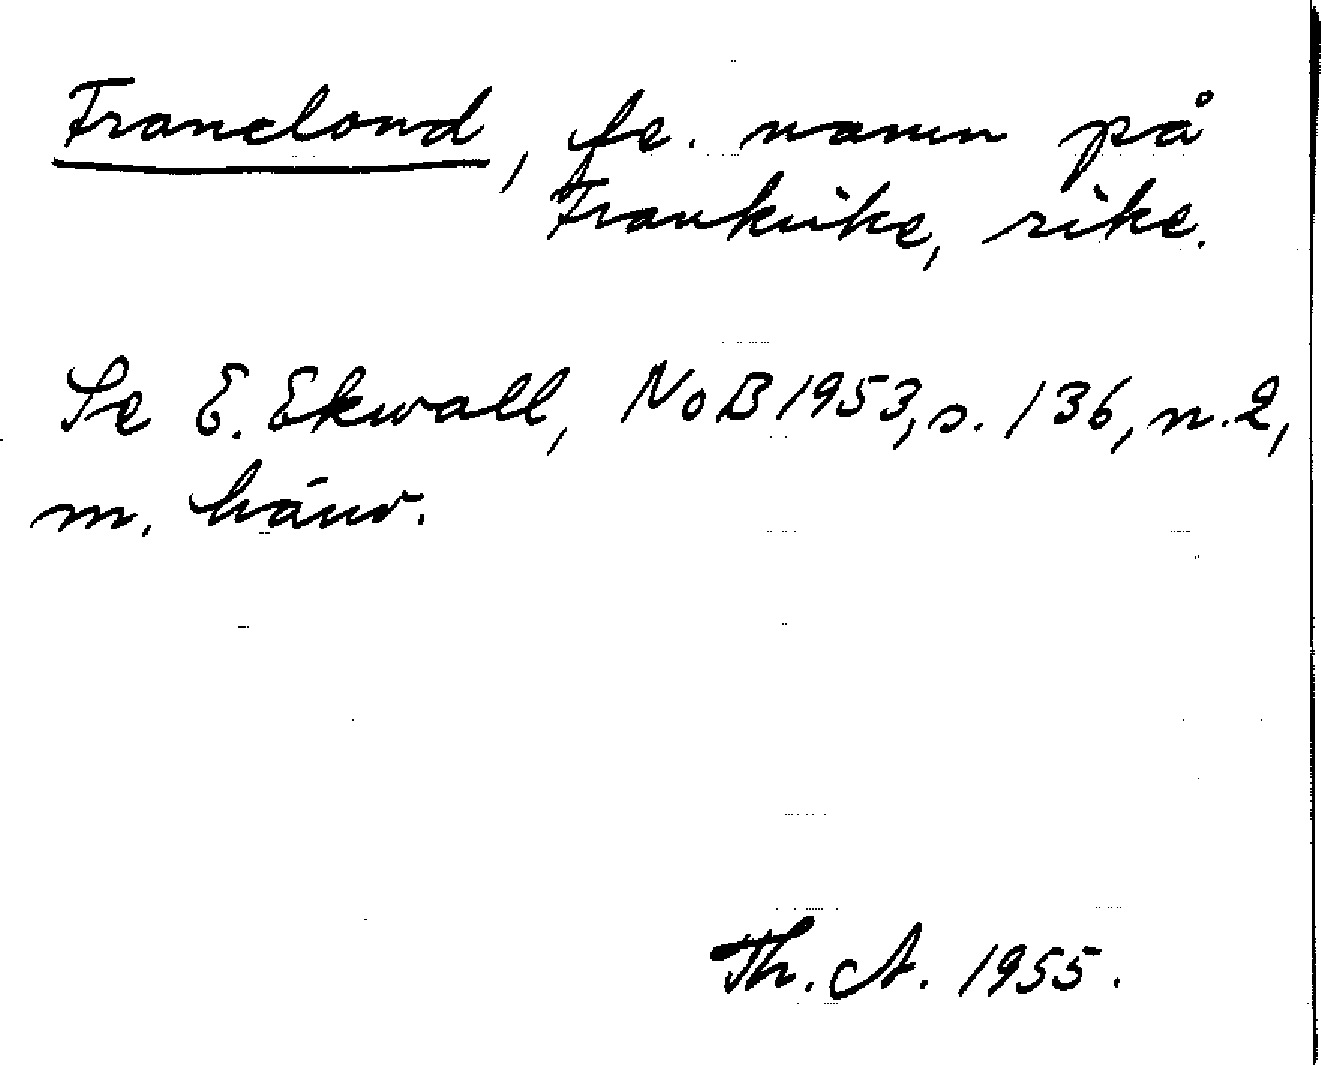 Franclond, fe. namn på
Frankrike, rike.
Se E. Ekwall, NoB 1953, s. 136, n. 2,
m. hänv.
Th. A. 1955.